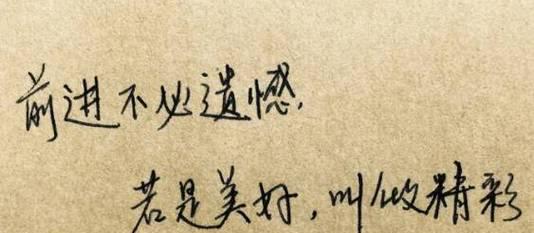 前进不必遗憾.
若是美好,叫做精彩